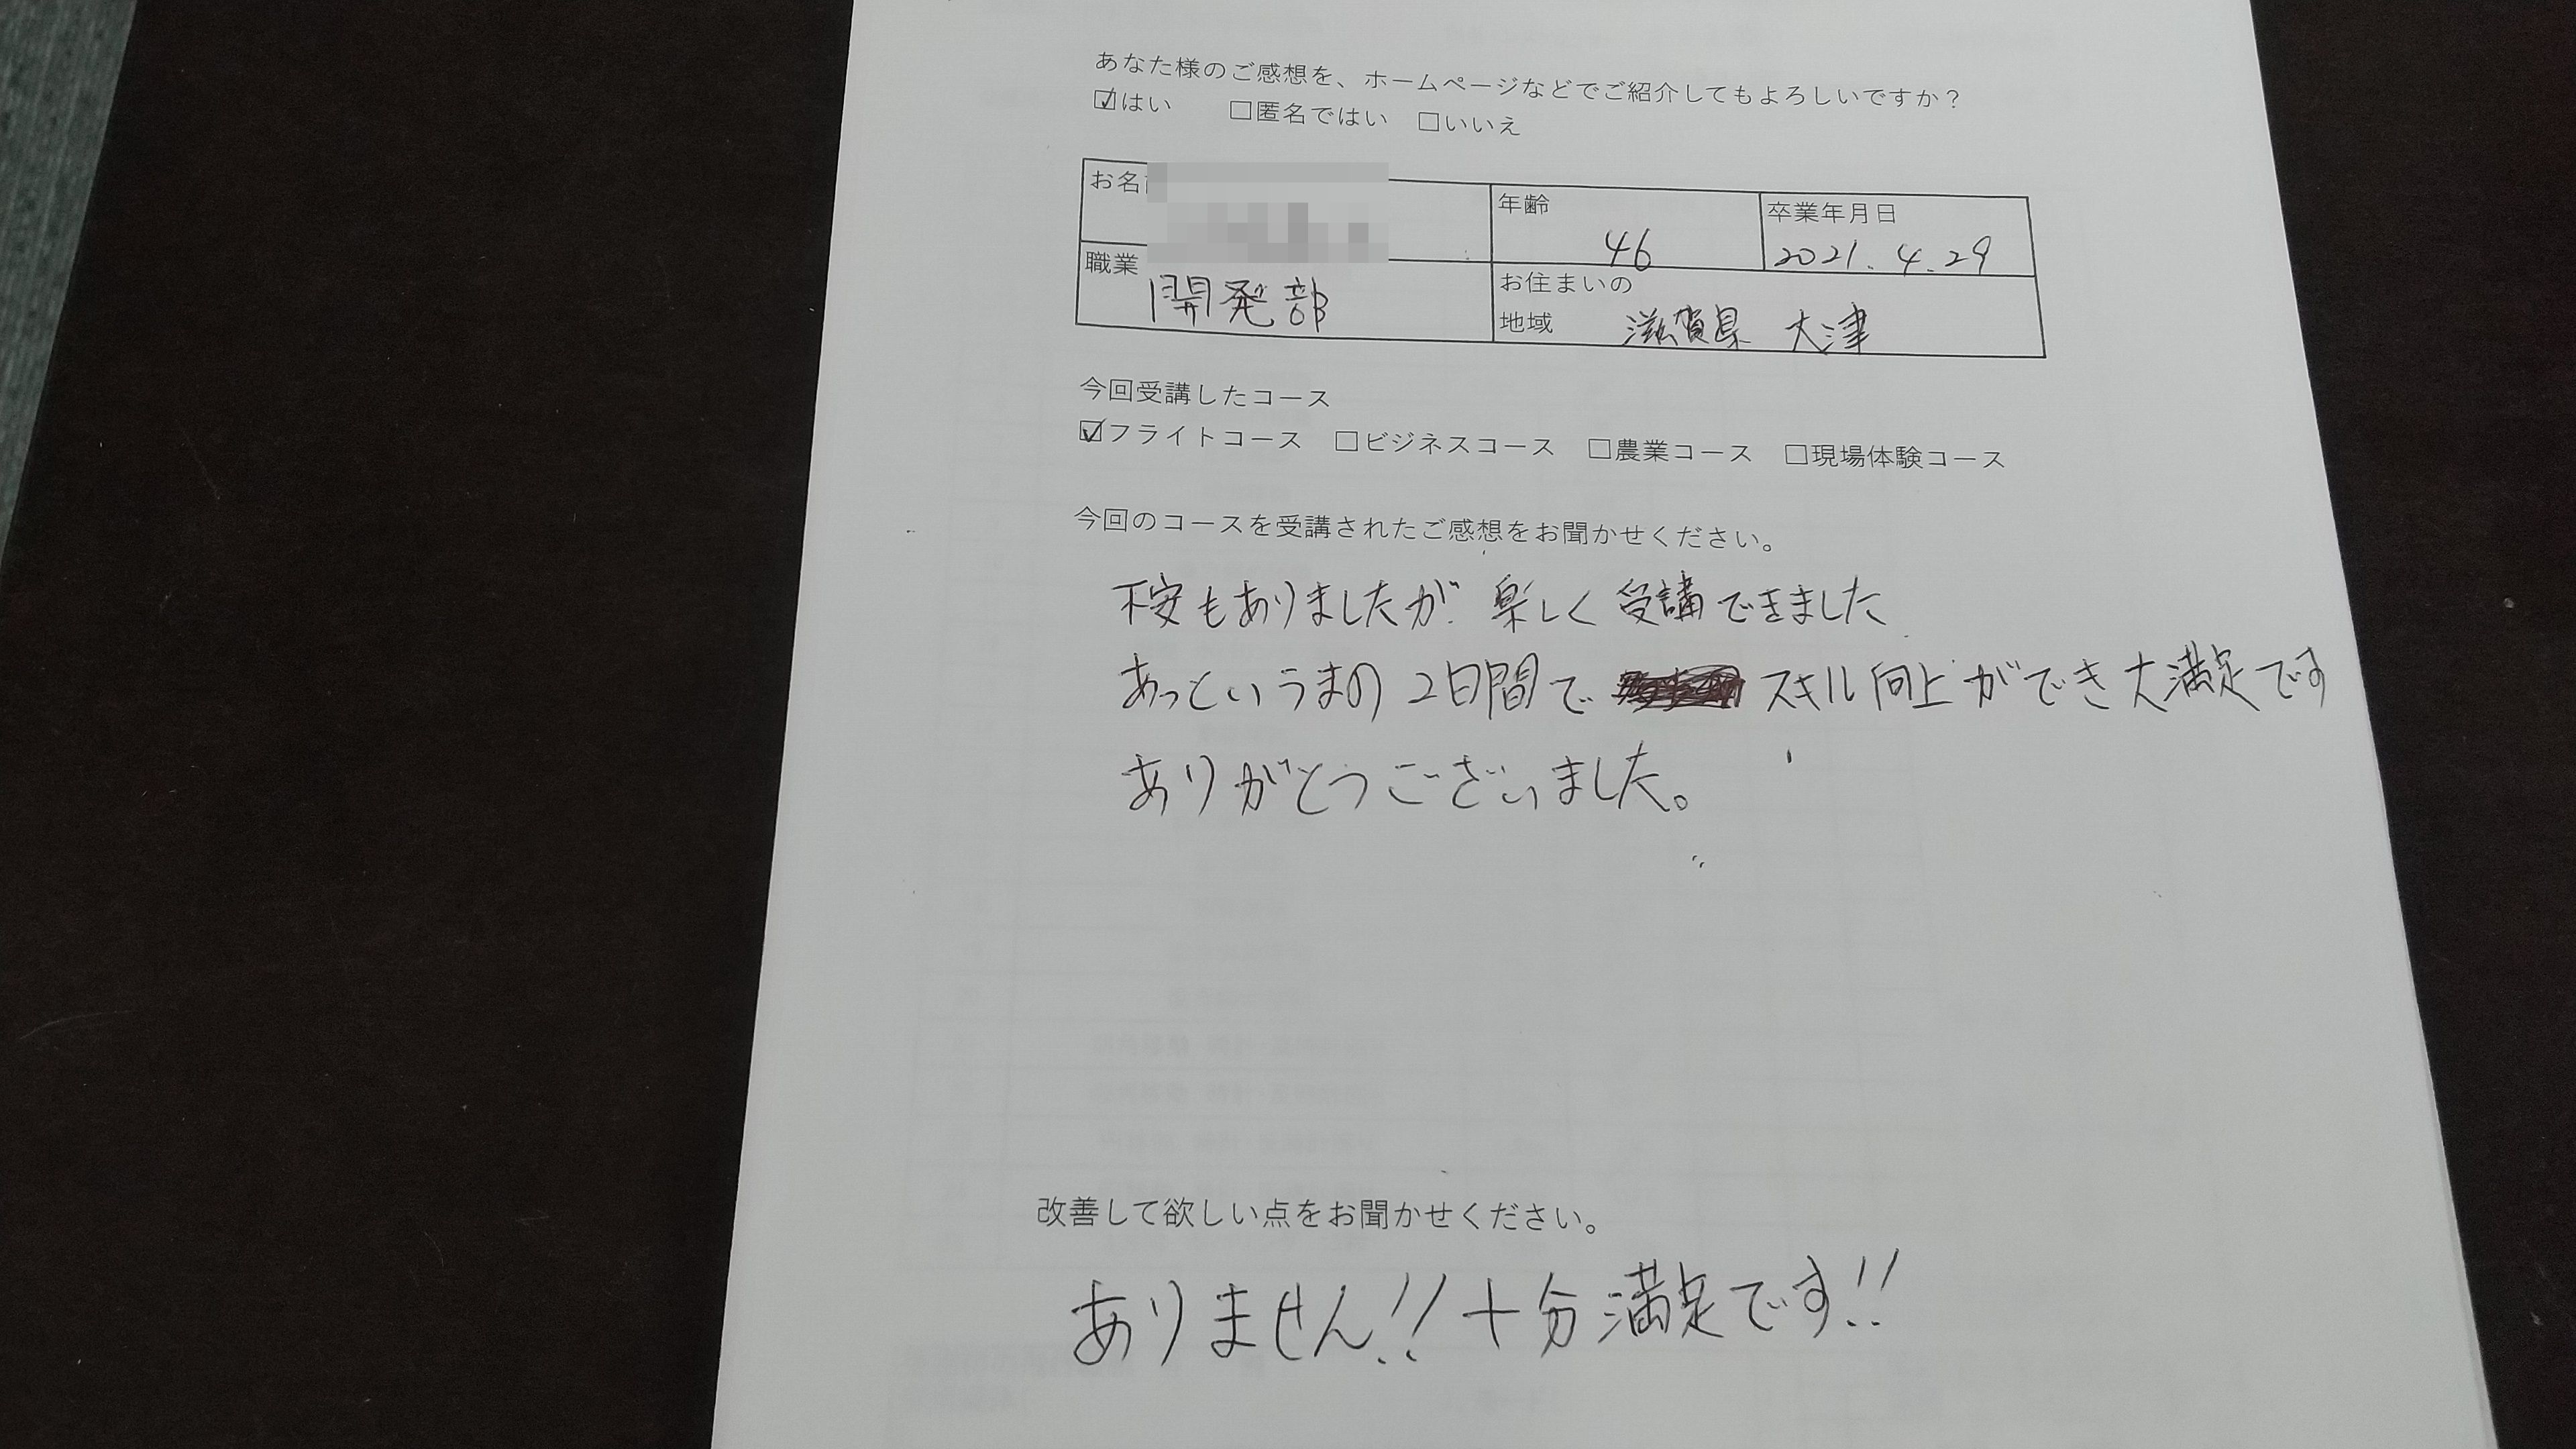 あなた様のご感想を、ホームページなどでご紹介してもよろしいですか？
☑はい　□匿名ではい　□いいえ
お名
年齢
46
卒業年月日
2021.4.29
職業
開発部
お住まいの
地域
滋賀県　大津
今回受講したコース
☑フライトコース　□ビジネスコース　□農業コース　□現場体験コース
今回のコースを受講されたご感想をお聞かせください。
不安もありましたが、楽しく受講できました
あっというまの2日間で スキル向上ができ大満足です
ありがとうございました。
改善して欲しい点をお聞かせください。
ありません!!十分満足です!!